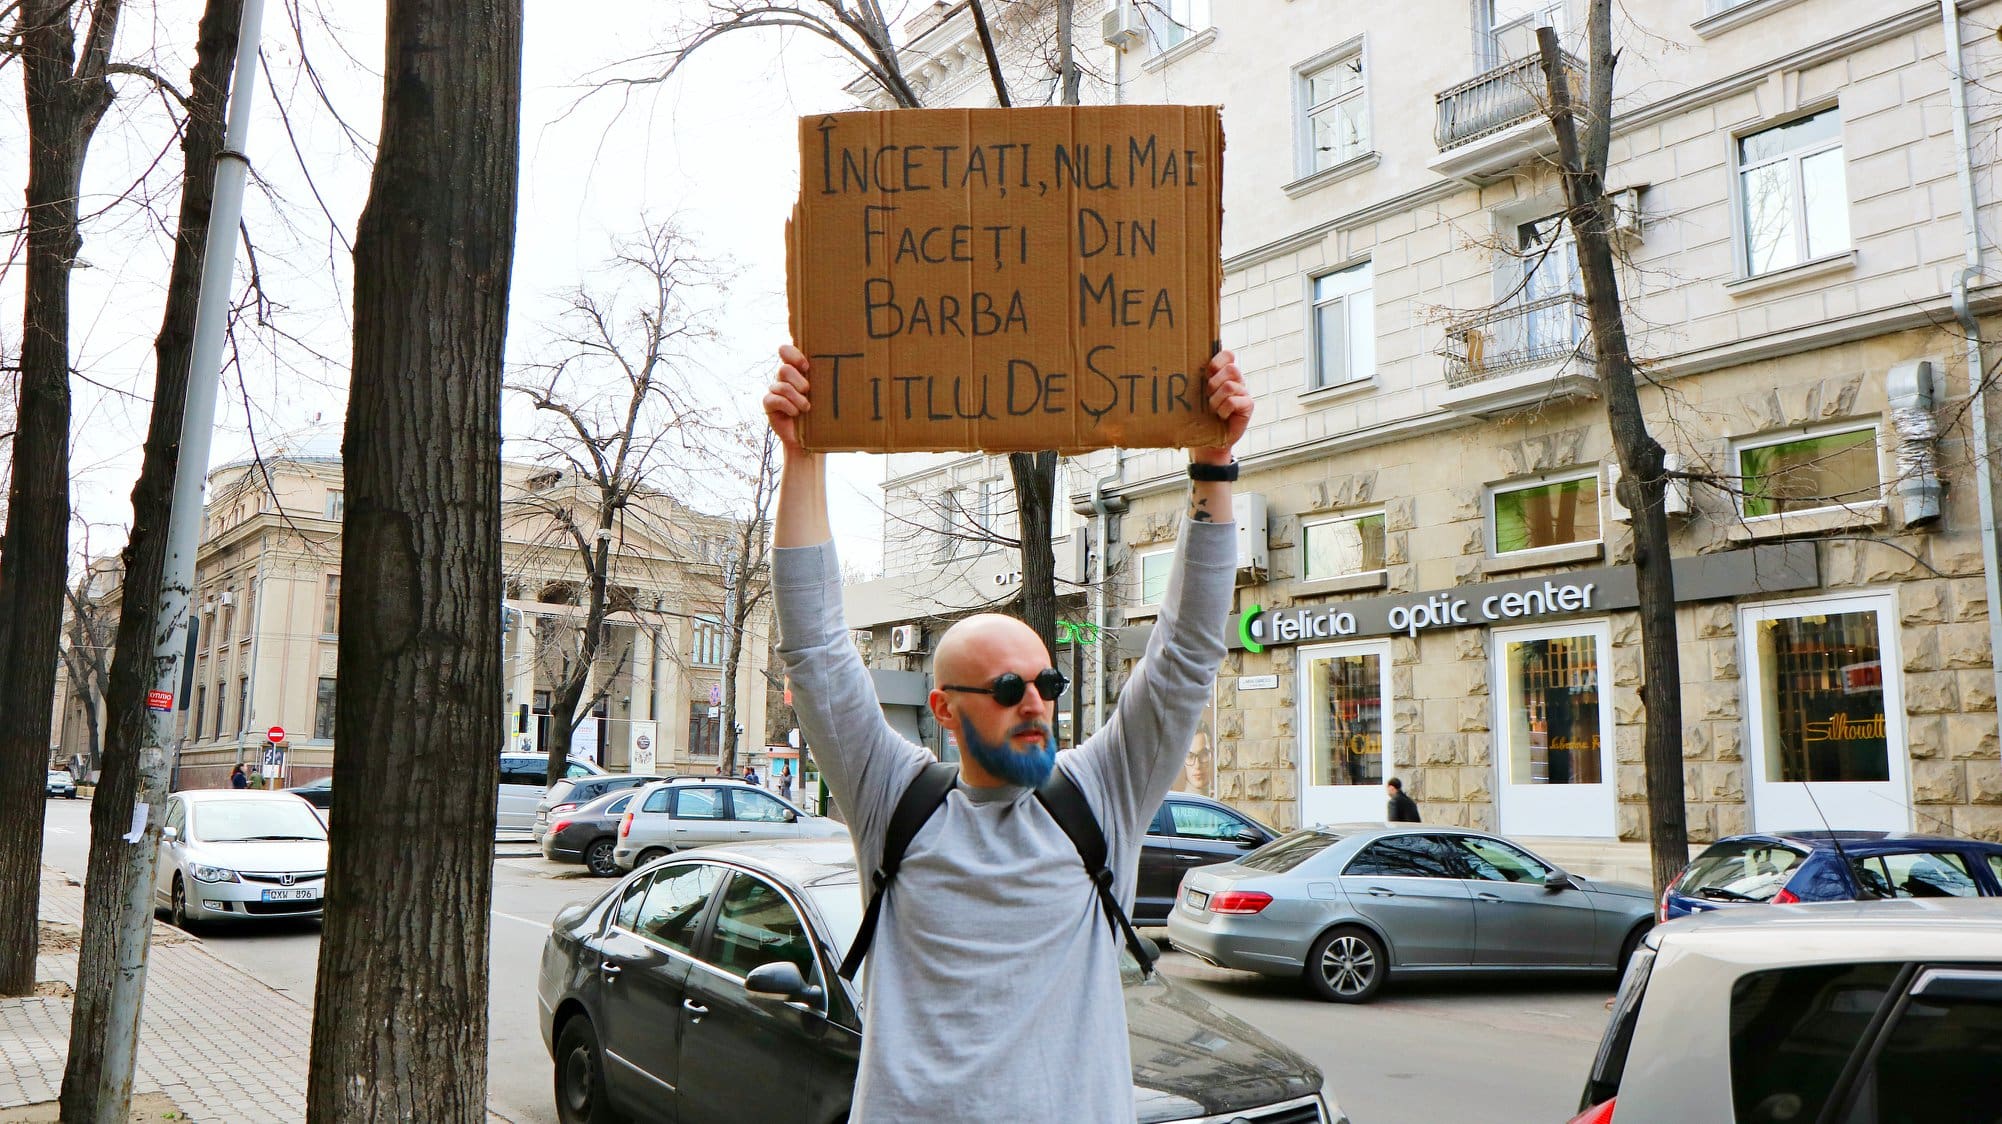 ÎNCETAȚI, NU MAI
FACEȚI DIN
BARBA MEA
TITLU DE ȘTIR
felicia optic center
Silhouett
КУПЛЮ
QXW 896